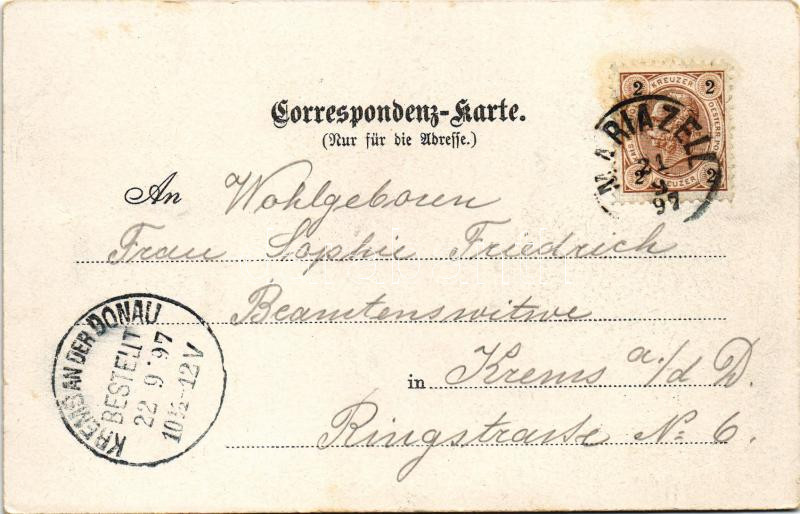 Correspondenz-Karte.
(Nur für die Adresse.)
2 KREUZER 2
2 KREUZER 2
MARIAZELL
21
9
97
An Wohlgeboren
Frau Sophie Friedrich
Beamtenswitwe
in Krems a./d D.
Ringstrasse No 6.
KREMS AN DER DONAU
BESTELLT
22 9 97
10½-12V